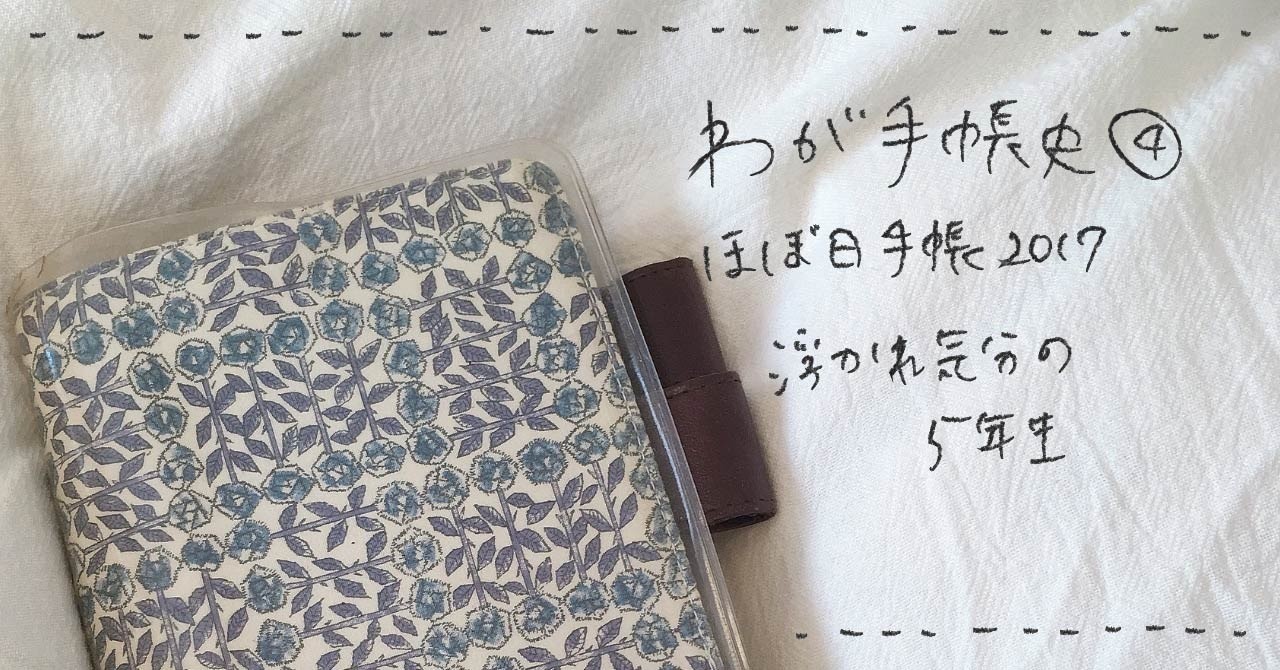 わが手帳史④
ほぼ日手帳2017
浮かれ気分の
5年生